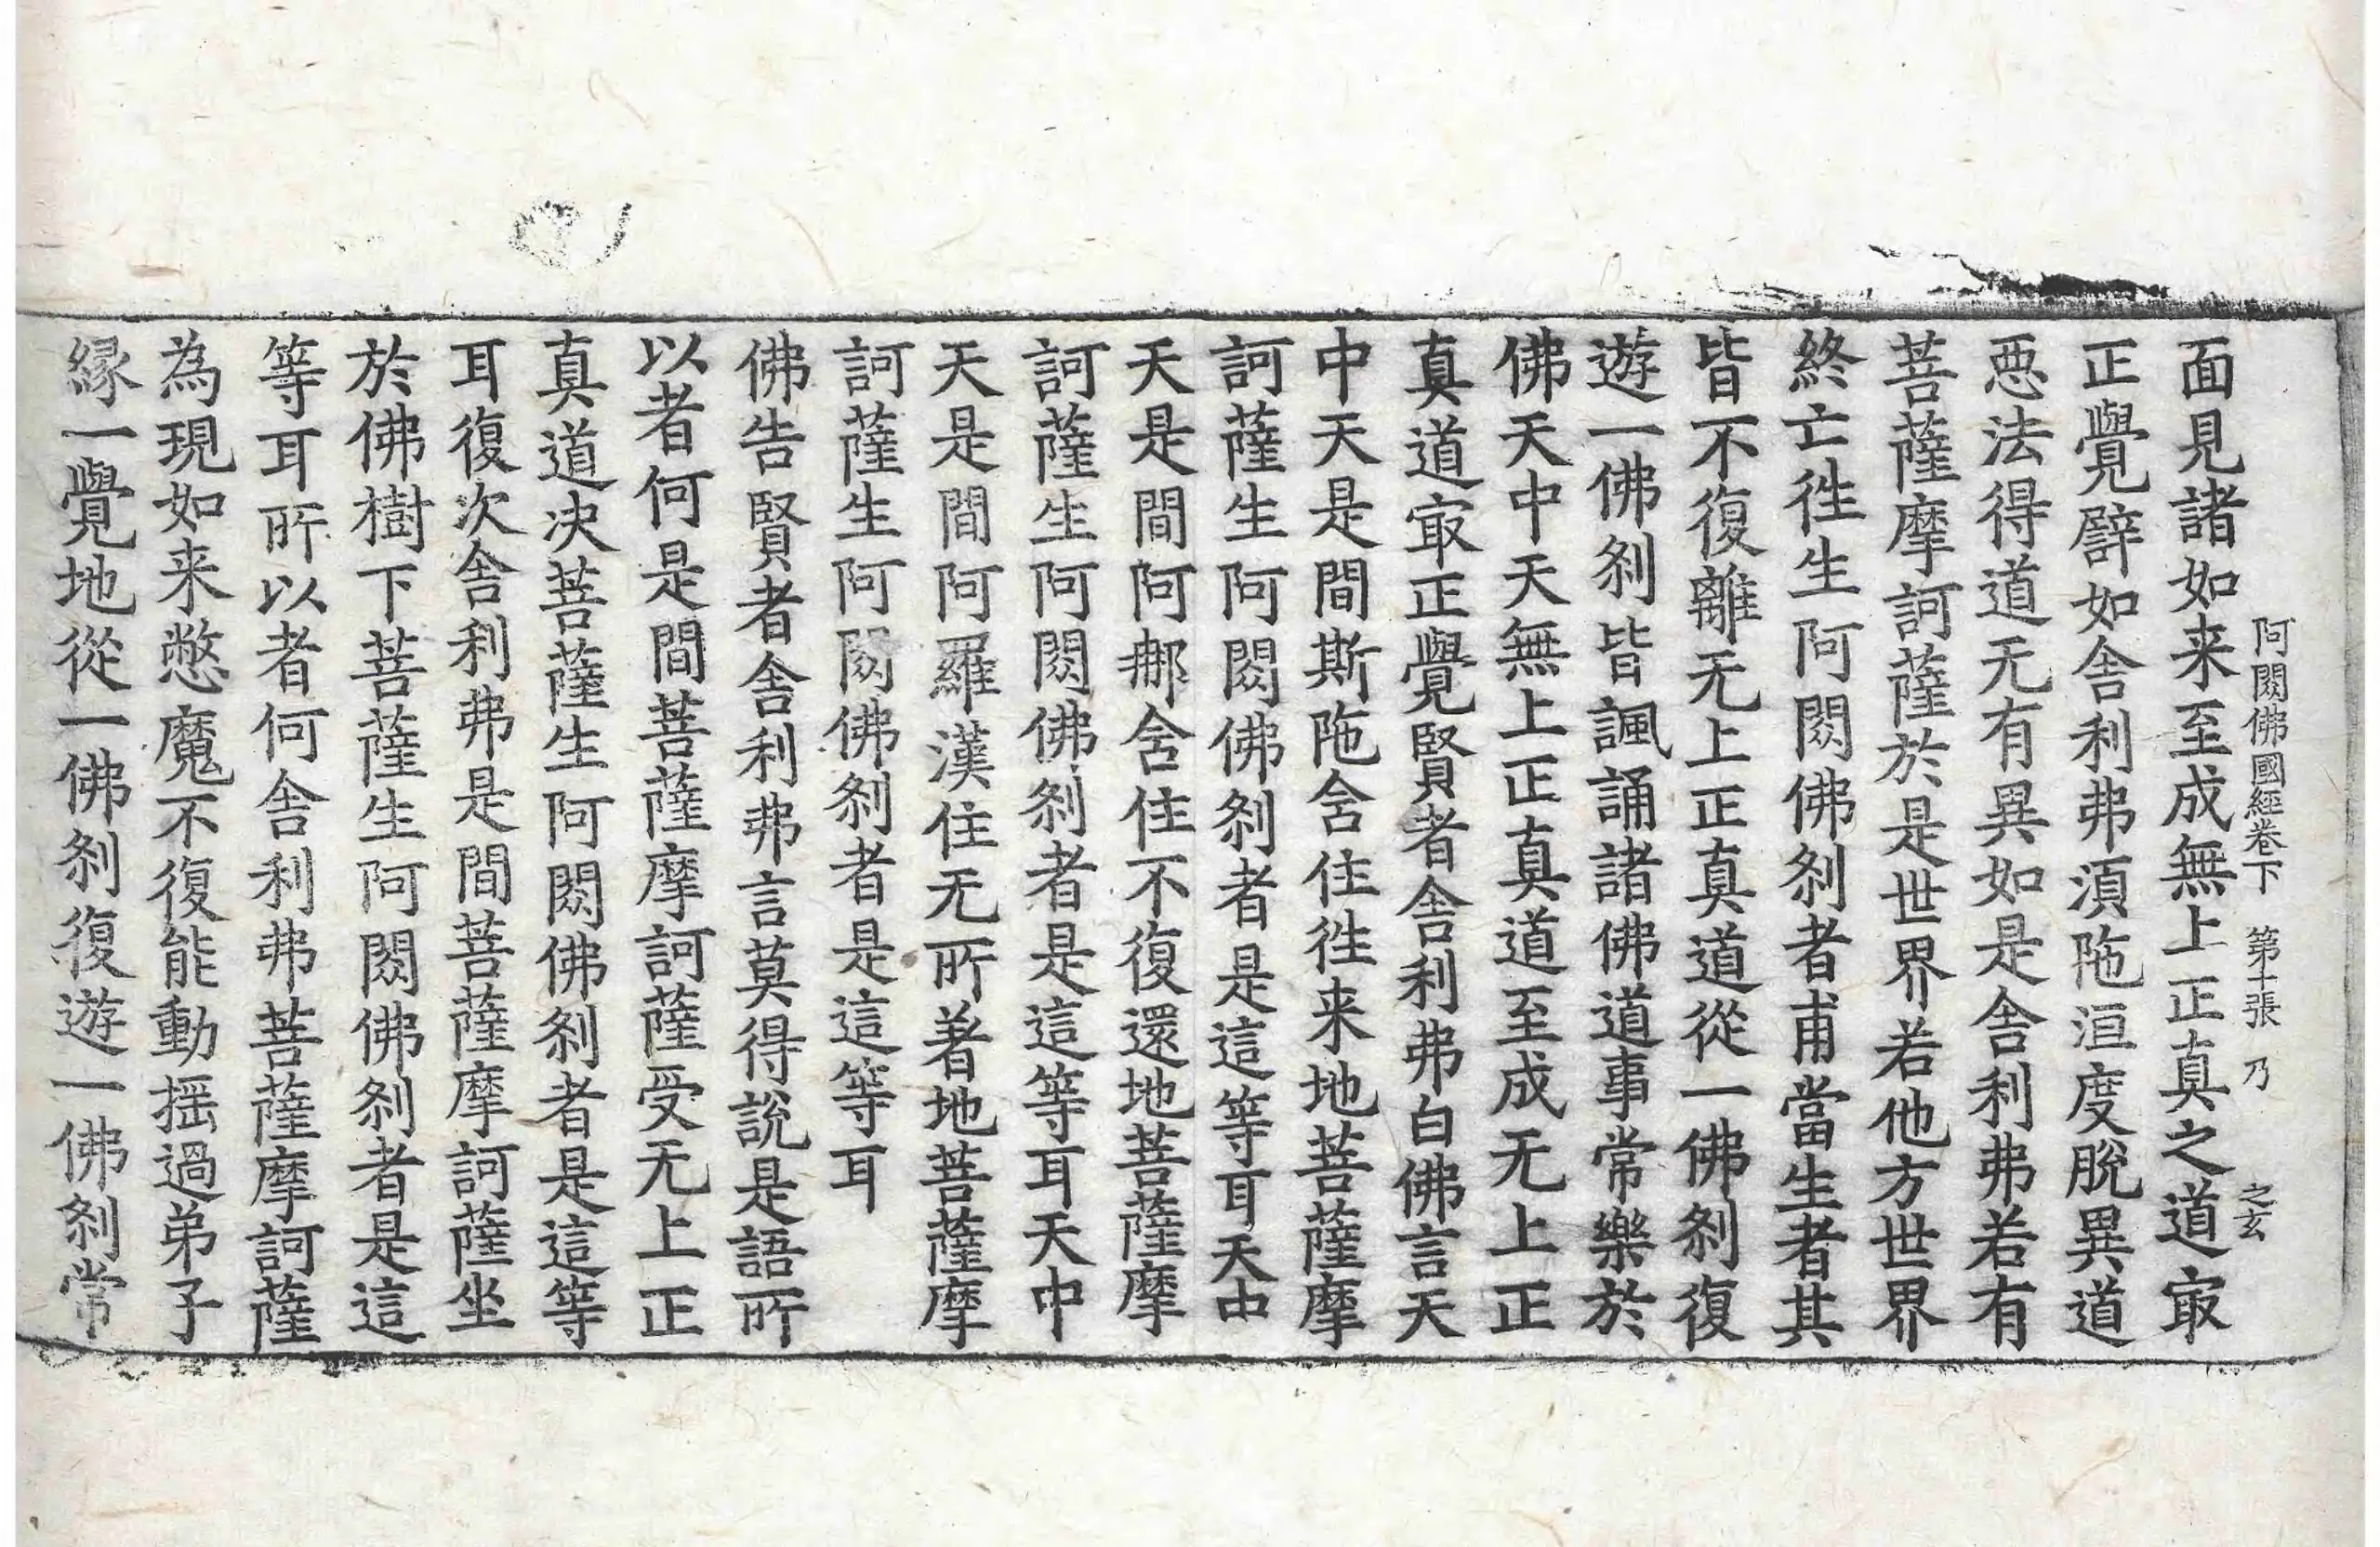 阿閦佛國經卷下 第十張 乃 之玄
面見諸如来至成無上正真之道㝡
正覺譬如舎利弗湏陁洹度脫異道
惡法得道无有異如是舎利弗若有
菩薩摩訶薩於是世界若他方世界
終亡徃生阿閦佛剎者甫當生者其
皆不復離无上正真道從一佛剎復
遊一佛剎皆諷誦諸佛道事常樂於
佛天中天無上正真道至成无上正
真道㝡正覺賢者舎利弗白佛言天
中天是間斯陁含住徃来地菩薩摩
訶薩生阿閦佛剎者是這等耳天中
天是間阿那含住不復還地菩薩摩
訶薩生阿閦佛剎者是這等耳天中
天是間阿羅漢住无所著地菩薩摩
訶薩生阿閦佛剎者是這等耳
佛告賢者舎利弗言莫得說是語所
以者何是間菩薩摩訶薩受无上正
真道决菩薩生阿閦佛剎者是這等
耳復次舎利弗是間菩薩摩訶薩坐
於佛樹下菩薩生阿閦佛剎者是這
等耳所以者何舎利弗菩薩摩訶薩
為現如来憋魔不復能動揺過弟子
縁一覺地從一佛剎復遊一佛剎常